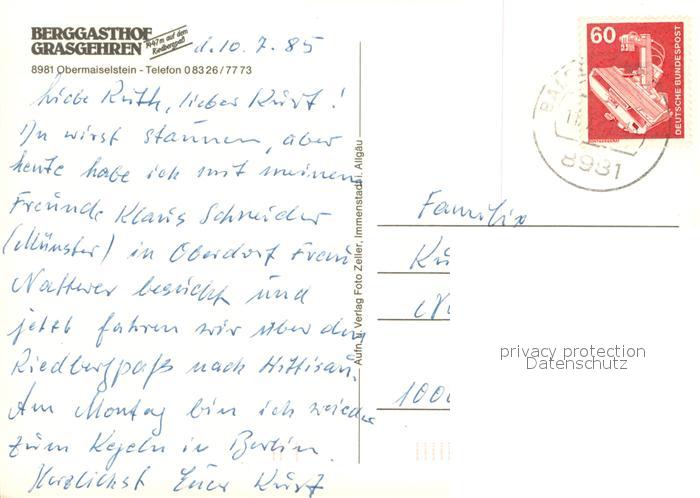 BERGGASTHOF
GRASGEHREN
1447m auf dem
Riedbergpaß
8981 Obermaiselstein - Telefon 08326/7773
d. 10. 7. 85
Liebe Ruth, lieber Kurt!
Du wirst staunen, aber
heute habe ich mit meinem
Freunde Klaus Schneider
(Münster) in Oberdorf Frau
Natterer besucht und
jetzt fahren wir über den
Riedbergpaß nach Hittisau.
Am Montag bin ich wieder
zum Kegeln in Berlin.
Herzlichst Euer Kurt
Aufn. u. Verlag Foto Zeller, Immenstadt i. Allgäu
60
DEUTSCHE BUNDESPOST
8981
Familie
Ku
100
privacy protection
Datenschutz